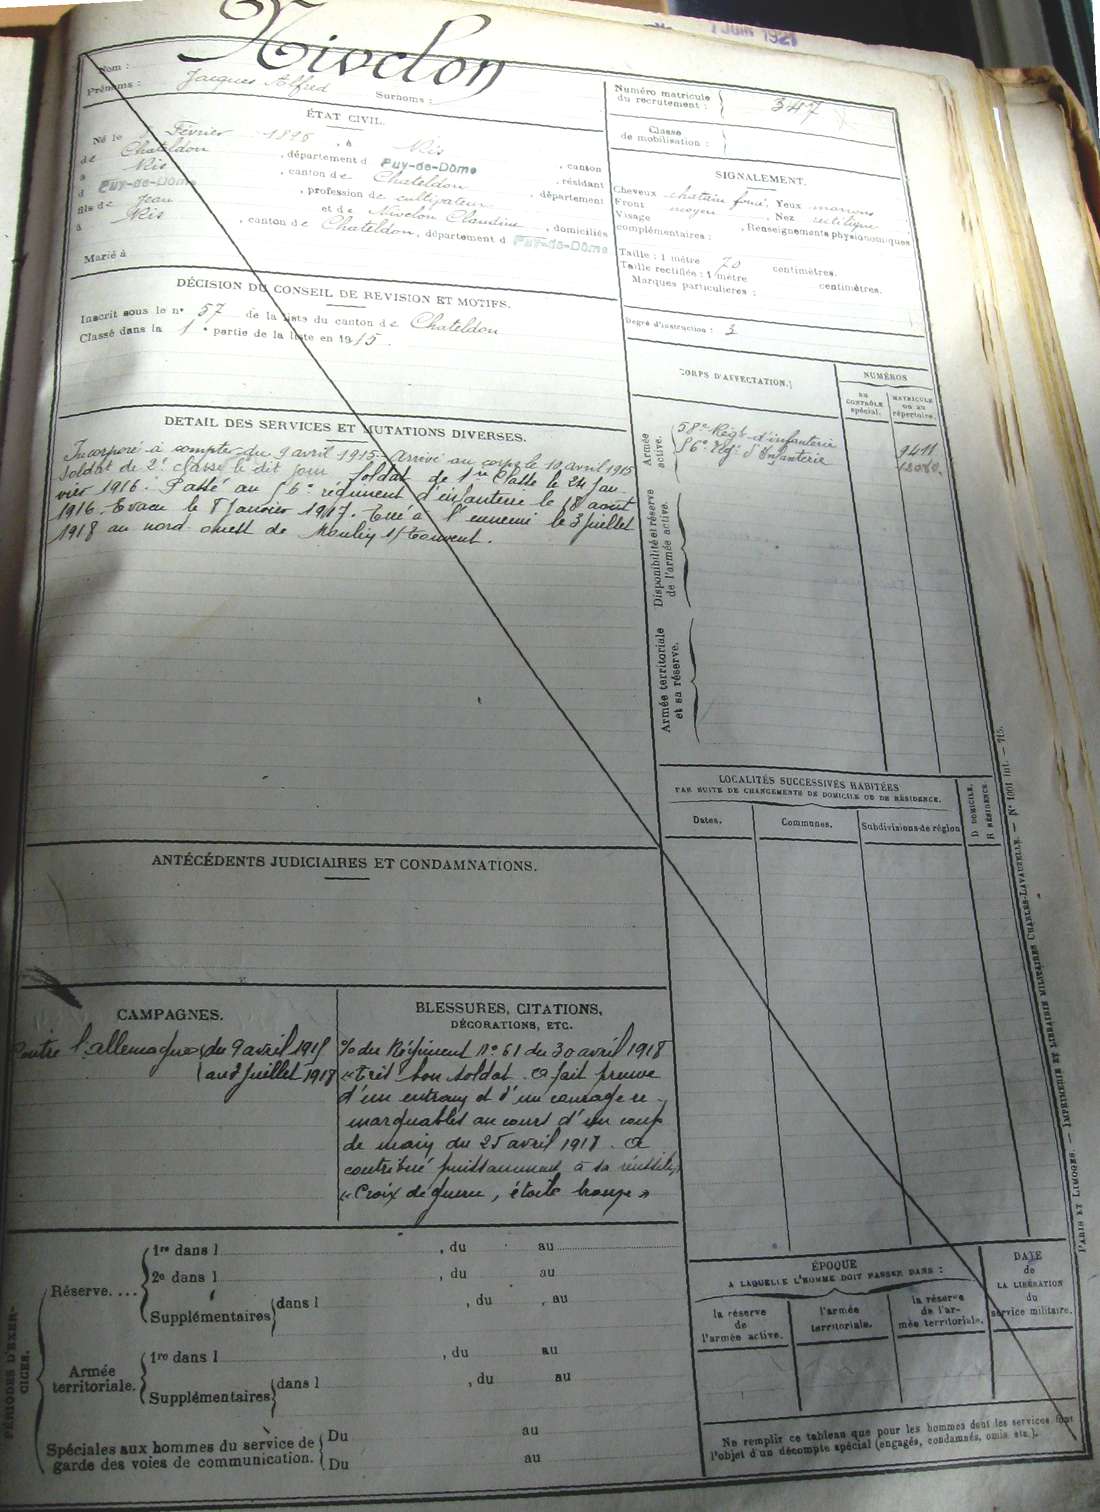 1 JUIN 1921
Nivelon
Nom :
Prénoms : Jacques Alfred Surnoms :
Numéro matricule du recrutement : 347
Classe de mobilisation :
ÉTAT CIVIL.
Né le Février 1896, à Ris, canton
de Chateldon, département d Puy-de-Dôme, résidant
à Ris, canton de Chateldon, département
d Puy-de-Dôme, profession de cultivateur
fils de Jean et de Nivelon Claudine, domiciliés
à Ris, canton de Chateldon, département d Puy-de-Dôme
Marié à
SIGNALEMENT.
Cheveux chatain foncé, Yeux marrons
Front moyen, Nez rectiligne
Visage , Renseignements physionomiques
complémentaires :
Taille : 1 mètre 70 centimètres.
Taille rectifiée : 1 mètre centimètres.
Marques particulières :
Degré d'instruction : 3
DÉCISION DU CONSEIL DE REVISION ET MOTIFS.
Inscrit sous le n° 57 de la liste du canton de Chateldon
Classé dans la 1e partie de la liste en 1915.
DETAIL DES SERVICES ET MUTATIONS DIVERSES.
Incorporé à compter du 9 avril 1915. Arrivé au corps le 10 avril 1915
Soldat de 2e classe le dit jour Soldat de 1re Classe le 24 jan-
vier 1916. Passé au 56e régiment d'infanterie le 18 août
1916. Evacué le 8 Janvier 1917. Tué à l'ennemi le 3 juillet
1918 au nord ouest de Moulin s/ Touvent.
CORPS D'AFFECTATION.
NUMÉROS
AU CONTRÔLE spécial.
MATRICULE OU AU répertoire.
Armée active.
58e Régt d'infanterie 9411
56e Rgt d'Infanterie
Disponibilité et réserve de l'armée active.
Armée territoriale et sa réserve.
LOCALITÉS SUCCESSIVES HABITÉES
PAR SUITE DE CHANGEMENTS DE DOMICILE OU DE RÉSIDENCE.
Dates.
Communes.
Subdivisions de région
D DOMICILE.
R RÉSIDENCE
ANTÉCÉDENTS JUDICIAIRES ET CONDAMNATIONS.
CAMPAGNES.
Contre l'allemagne du 9 avril 1915
au 3 juillet 1918
BLESSURES, CITATIONS,
DÉCORATIONS, ETC.
O/ du Régiment N° 61 du 30 avril 1918
« Très bon soldat. a fait preuve
d'un entrain et d'un courage re-
marquables au cours d'un coup
de main du 25 avril 1918. a
contribué puissamment à sa réussite
« Croix de guerre, étoile bronze »
PÉRIODES D'EXERCICES.
Réserve....
1re dans l , du au
2e dans l , du au
Supplémentaires dans l , du au
Armée territoriale.
1re dans l , du au
Supplémentaires dans l , du au
Spéciales aux hommes du service de
garde des voies de communication.
Du au
Du au
ÉPOQUE
A LAQUELLE L'HOMME DOIT PASSER DANS :
la réserve de l'armée active.
l'armée territoriale.
la réserve de l'armée territoriale.
DATE de LA LIBÉRATION du service militaire.
Ne remplir ce tableau que pour les hommes dont les services font
l'objet d'un décompte spécial (engagés, condamnés, omis etc.).
PARIS ET LIMOGES. — IMPRIMERIE ET LIBRAIRIE MILITAIRES CHARLES-LAVAUZELLE. — N° 1001 int. — 715.